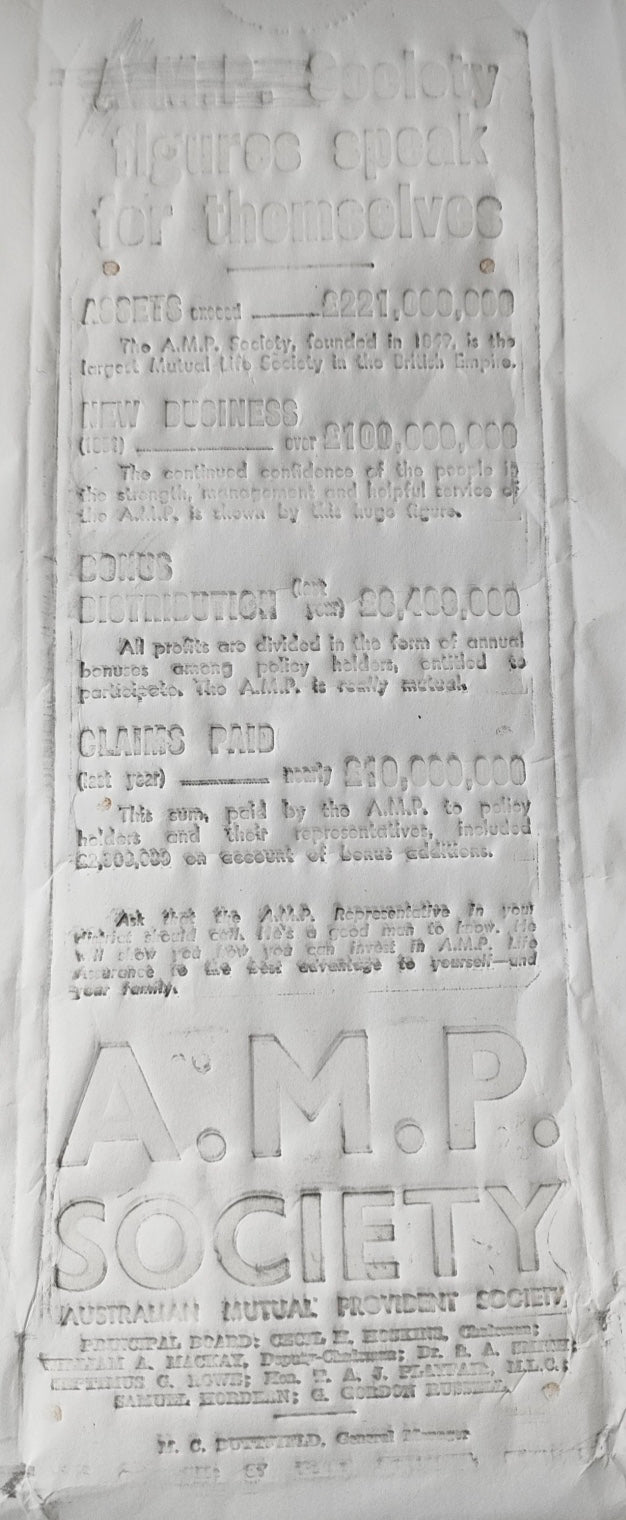 A.M.P. Society
figures speak
for themselves
ASSETS exceed £221,000,000
The A.M.P. Society, founded in is the
largest Mutual Life Society in the British Empire.
NEW BUSINESS
over £100,000,000
The continued confidence of the people in
the strength, management and helpful service of
the A.M.P. is shown by this huge figure.
BONUS
DISTRIBUTION (last year)
All profits are divided in the form of annual
bonuses among policy holders, entitled to
participate. The A.M.P. is really mutual.
CLAIMS PAID
(last year) nearly £10,000,000
This sum, paid by the A.M.P. to policy
holders and their representatives, included
on account of bonus additions.
Ask that the A.M.P. Representative in your
district should call. He's a good man to know. He
will show you how you can invest in A.M.P. Life
Assurance to the best advantage to yourself—and
your family.
A.M.P.
SOCIETY
AUSTRALIAN MUTUAL PROVIDENT SOCIETY
PRINCIPAL BOARD: CECIL H. HOSKINS, Chairman;
WILLIAM A. MACKAY, Deputy-Chairman; Dr. A.
SEPTIMUS G. ROWE; Hon. A. J. PLAYFAIR, M.L.C.;
SAMUEL HORDERN; G. GORDON RUSSELL.
M. C. BUTTFIELD, General Manager